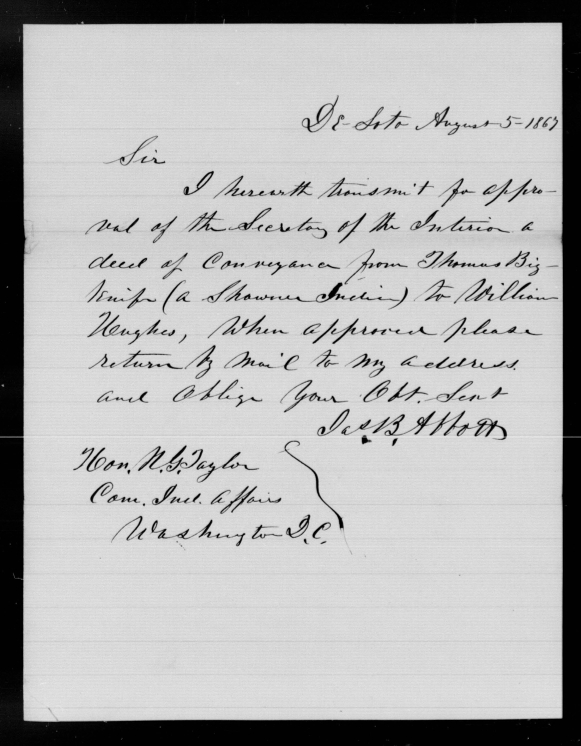 De Soto August 5 - 1867
Sir
I herewith transmit for appro-
val of the Secretary of the Interior a
deed of Conveyance from Thomas Big-
knife (a Shawnee Indian) to William
Hughes, When approved please
return by mail to my address.
and Oblige Your Obt. Servt
Jas. B. Abbott
Hon. N. G. Taylor
Com. Ind. Affairs
Washington D.C.